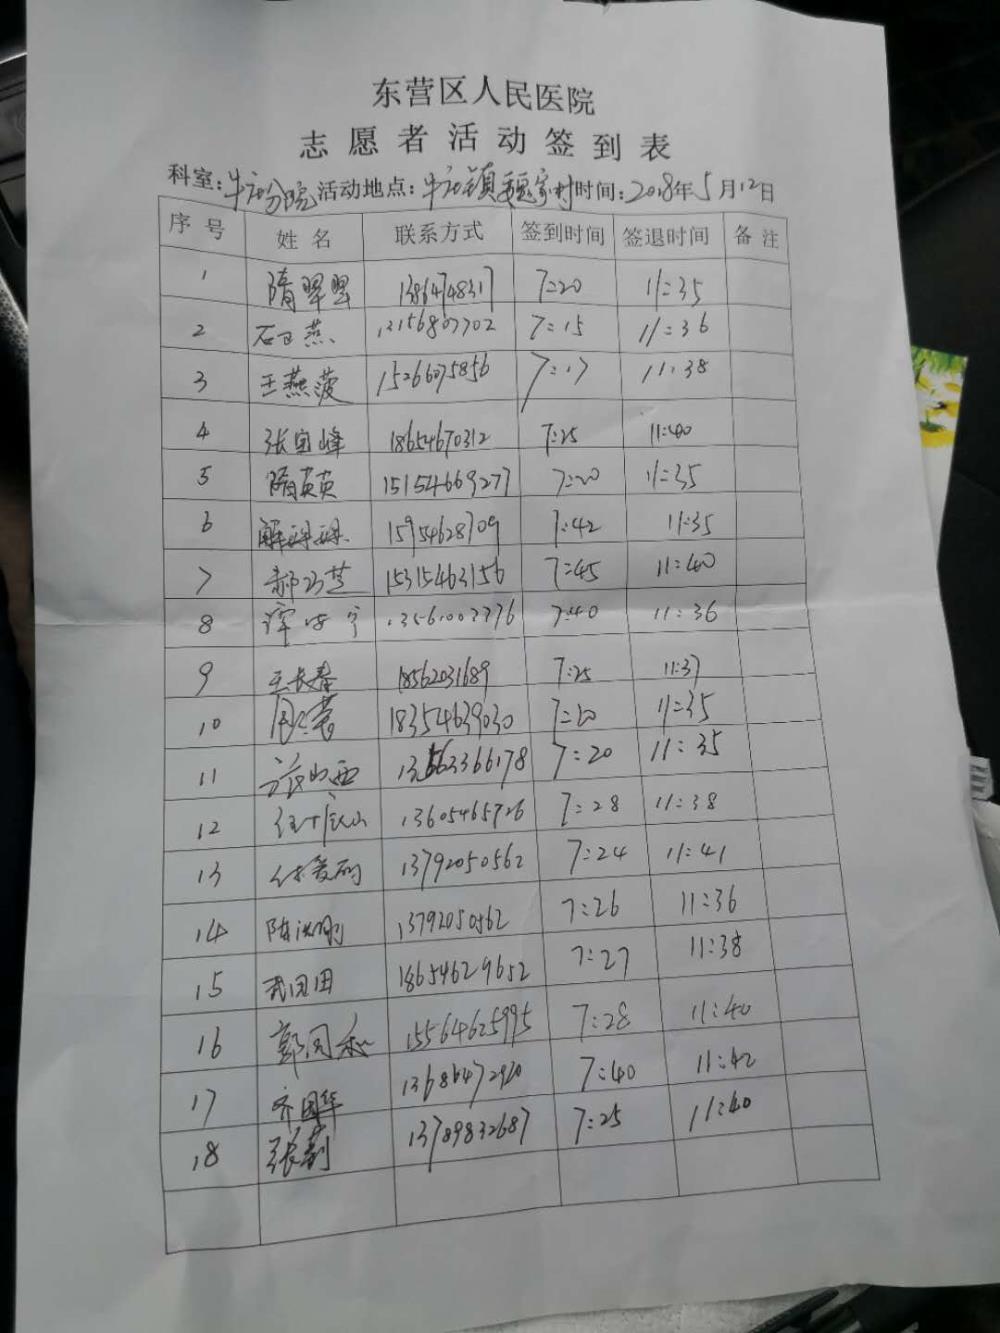 东营区人民医院
志愿者活动签到表
科室:牛庄分院 活动地点:牛庄镇 家村 时间:2018年5月12日
序号 姓名 联系方式 签到时间 签退时间 备注
1 隋翠翠 13864748317 7:20 11:35
2 石 燕 13156807702 7:15 11:36
3 王燕菠 15266075856 7:17 11:38
4 张宝峰 18654670312 7:25 11:40
5 隋英英 15154669277 7:20 11:35
6 解 15954628709 7:42 11:35
7 郝 芝 15315463156 7:45 11:40
8 谭 宁 7:40 11:36
9 王长春 18562031689 7:25 11:37
10 周 18354639030 11:35
11 7:20 11:35
12 任 山 13605465726 7:28 11:38
13 付爱 13792050562 7:24 11:41
14 陈 刚 13792050562 7:26 11:36
15 武团田 18654629652 7:27 11:38
16 郭同 15564625995 7:28 11:40
17 齐国华 13686472920 7:40 11:42
18 张莉 13789832687 7:25 11:40